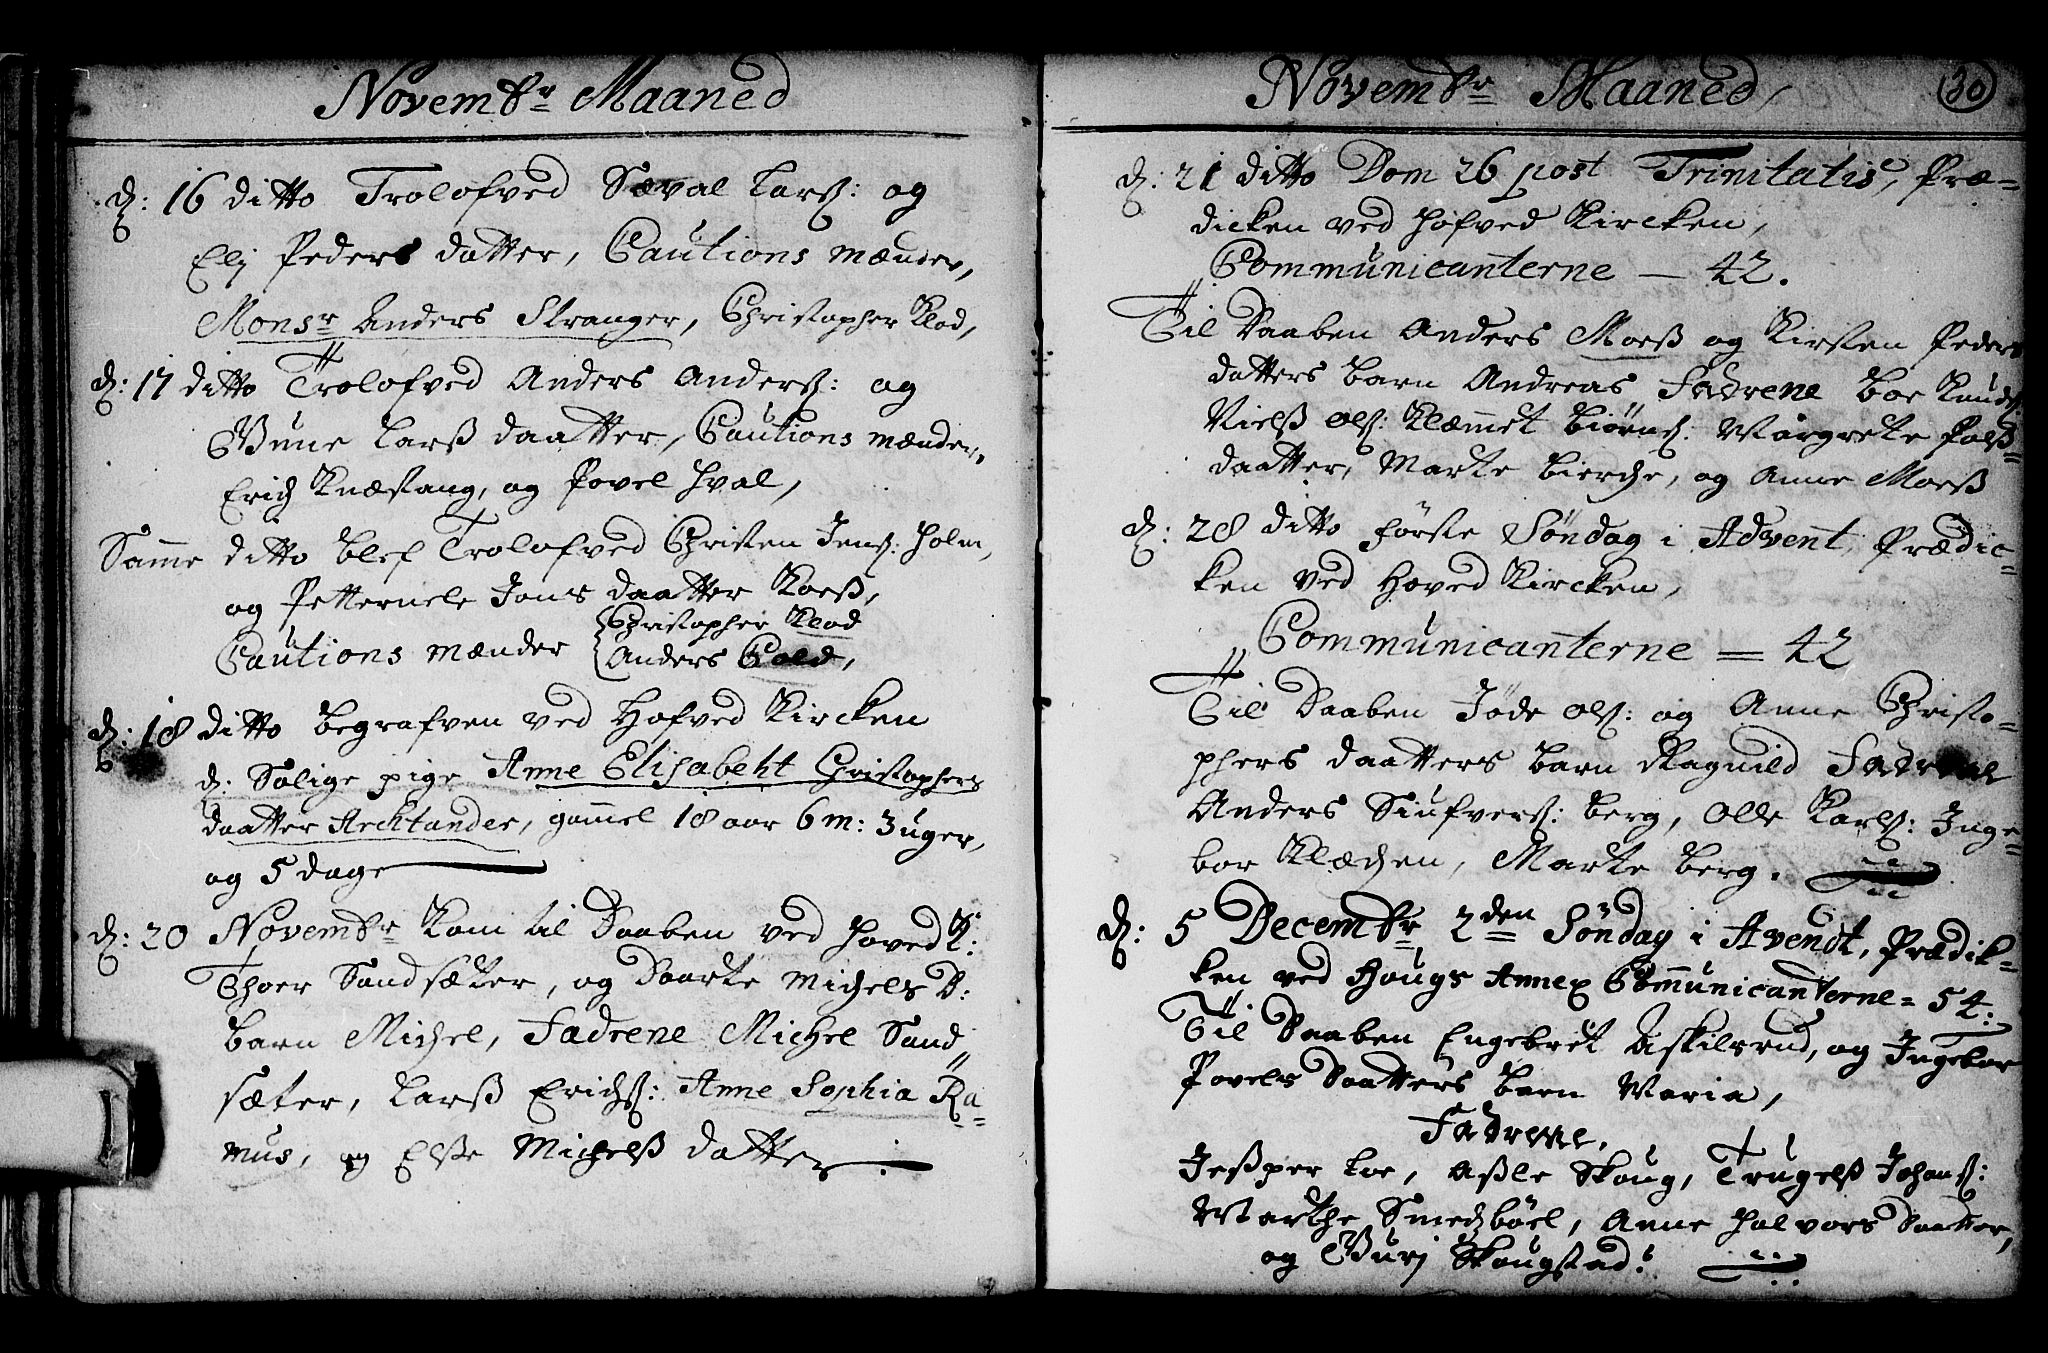 Novembr Maaned
d: 16 ditto Trolofved Sæval Larß: og
Elj Peders datter, Cautions mænder,
Monsr Anders Stranger, Christopher Klod,
d: 17 ditto Trolofved Anders Anderß: og
Gune Larß daatter, Cautions mænder,
Erich Knæstang, og Povel Hval,
Samme ditto blef Trolofved Christen Jenß: Holm,
og Petternele Jons daatter Koeß,
Cautions mænder { Christopher Klod
Anders Cold,
d: 18 ditto begrafven ved Hofved Kircken
d: Salige pige Anne Elisabeht Christophers
daatter Archtander, gammel 18 aar 6 m: 3 uger,
og 5 dage
d: 20 Novembr Kom til Daaben ved Hoved K:
Thoer Sandsæter, og Daarte Michels D:
barn Michel, Fadrene Michel Sand
sæter, Larß Erichß: Anne Sophia Ra-
mus, og Elße Michelß datter
Novembr Maaned
30
d: 21 ditto Dom 26 post Trinitatis, Præ-
dicken ved Hofved Kircken,
Communicanterne — 42.
Til Daaben Anders Moeß og Kirsten Peders
datters barn Andreas, Fadrene Boe Knudß:
Nielß Olß: Klæmmet Biörnß: Margrete Polß-
daatter, Marte Bierche, og Anne Moeß
d: 28 ditto förste Söndag i Advent, Prædic-
ken ved Hoved Kircken,
Communicanterne = 42
Til Daaben Jöde Olß: og Anne Christo-
phers daatters barn Ragnild Fadrene
Anders Siufverß: Berg, Olle Karlß: Inge-
bor Klæchen, Marte Berg.
d: 5 Decembr 2den Söndag i Avendt, Prædik-
ken ved Hougs Annex Communicanterne = 54:
Til Daaben Engebret Askilsrud, og Ingebor
Povels Daatters barn Maria,
Fadrene,
Jeßper Loe, Aßle Skoug, Trugelß Johanß:
Marthe Smedsböel, Anne Halvors Daatter,
og Gurj Skougstad: